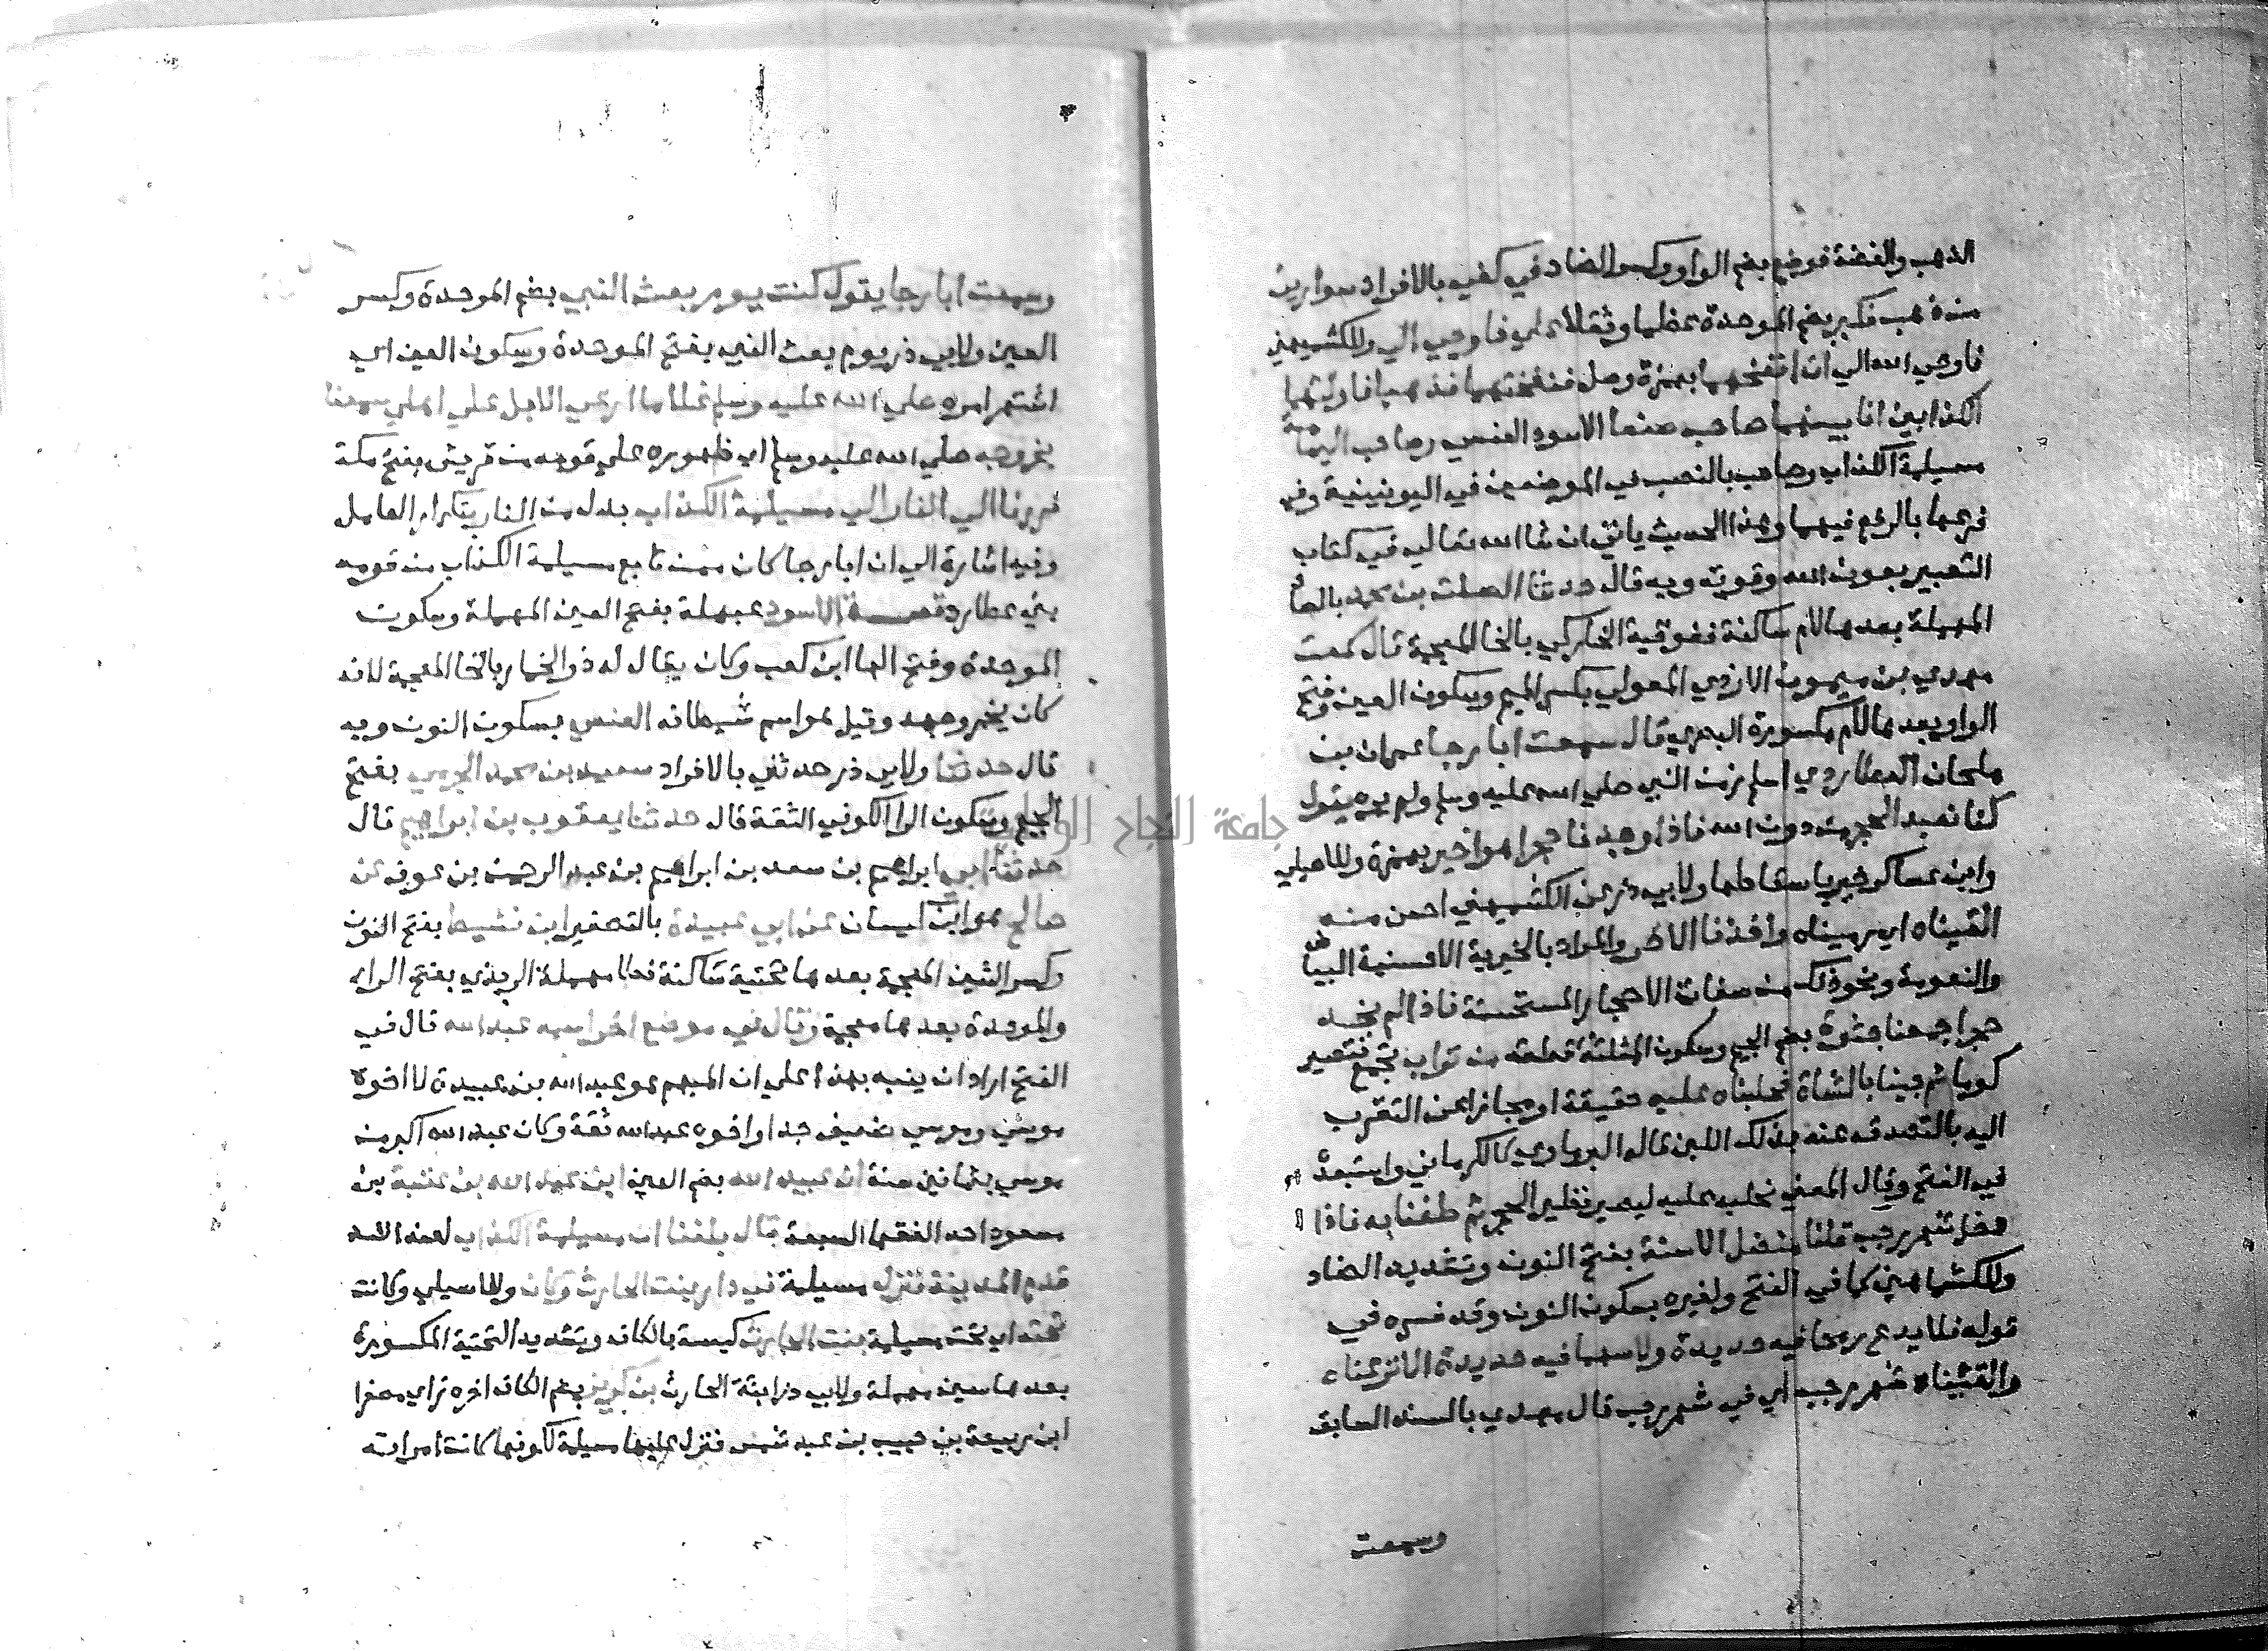 الذهب والفضة فوضع بضم الواو وكسر الضاد في كفي بالافراد سوارين
من ذهب فكبر بضم الموحدة عظما وثقلا علي فاوحي الي وللكشميهني
فاوحي الله الي ان انفخهما بهمزة وصل فنفختهما فذهبا فاولتهما
الكذابين انا بينهما صاحب صنعا الاسود العنسي وصاحب اليمامة
مسيلمة الكذاب وصاحب بالنصب في الموضعين في اليونينية وفي
فرعها بالرفع فيهما وهذا الحديث ياتي ان شا الله تعالي في كتاب
التعبير بعون الله وقوته وبه قال حدثنا الصلت بن محمد بالصاد
المهملة بعدها لام ساكنة ففوقية الخاركي بالخا المعجمة قال سمعت
مهدي بن ميمون الازدي المعولي بكسر الميم وسكون العين وفتح
الواو بعدها لام مكسورة البصري قال سمعت ابا رجا عمران بن
ملحان العطاردي اسلم زمن النبي صلي الله عليه وسلم ولم يره يقول
كنا نعبد الحجر من دون الله فاذا وجدنا حجرا هو اخير بهمزة وللاصيلي
وابن عساكر خير باسقاطها ولابي ذر عن الكشميهني احسن منه
القيناه اي رميناه واخذنا الاخر والمراد بالخيرية الاحسنية البياض
والنعومة ونحو ذلك من صفات الاحجار المستحسنة فاذا لم نجد
حجرا جمعنا جثوة بضم الجيم وسكون المثلثة قطعة من تراب تجمع فتصير
كوما ثم جينا بالشاة فحلبناه عليه حقيقة او مجازا عن التقرب
اليه بالتصدق عنه بذلك اللبن قاله البرماوي كالكرماني واستبعده
في الفتح وقال المعني نحلبه عليه ليصير نظير الحجر ثم طفنا به فاذا
دخل شهر رجب قلنا منصل الاسنة بفتح النون وتشديد الصاد
وللكشميهني كما في الفتح ولغيره بسكون النون وقد فسره في
قوله فلا يدع رمحا فيه حديدة ولا سهما فيه حديدة الا نزعناه
والقيناه شهر رجب اي في شهر رجب قال مهدي بالسند السابق
وسمعت
وسمعت ابا رجا يقول كنت يوم بعث النبي بضم الموحدة وكسر
العين ولابي ذر يوم بعث النبي بفتح الموحدة وسكون العين اي
اشتهر امره صلي الله عليه وسلم غلاما ارعي الابل علي اهلي سمعنا
بخروجه صلي الله عليه وسلم اي ظهوره علي قومه من قريش بفتح مكة
فررنا الي النار الي مسيلمة الكذاب بدل من النار بتكرار العامل
وفيه اشارة الي ان ابا رجا كان ممن تابع مسيلمة الكذاب من قومه
بني عطارد قصة الاسود عبهلة بفتح العين المهملة وسكون
الموحدة وفتح الها ابن كعب وكان يقال له ذو الخمار بالخا المعجمة لانه
كان يخمر وجهه وقيل هو اسم شيطانه العنسي بسكون النون وبه
قال حدثنا ولابي ذر حدثني بالافراد سعيد بن محمد الجرمي بفتح
الجيم وسكون الرا الكوفي الثقة قال حدثنا يعقوب بن ابراهيم قال
حدثنا ابي ابراهيم بن سعد بن ابراهيم بن عبد الرحمن بن عوف عن
صالح هو ابن كيسان عن ابي عبيدة بالتصغير ابن نشيط بفتح النون
وكسر الشين المعجمة بعدها تحتية ساكنة فطا مهملة الربذي بفتح الراء
والموحدة بعدها معجمة وقال في موضع اخر اسمه عبد الله قال في
الفتح اراد ان ينبه بهذا علي ان المبهم هو عبد الله بن عبيدة لا اخوه
موسي وموسي ضعيف جدا واخوه عبد الله ثقة وكان عبد الله اكبر من
موسي بثمانين سنة ان عبيد الله بضم العين ابن عبد الله بن عتبة بن
مسعود احد الفقها السبعة قال بلغنا ان مسيلمة الكذاب لعنه الله
قدم المدينة فنزل مسيلمة في دار بنت الحارث وكان وللاصيلي وكانت
تحته اي تحت مسيلمة بنت الحارث كيسة بالكاف وتشديد التحتية المكسورة
بعدها سين مهملة ولابي ذر ابنة الحارث بن كريز بضم الكاف اخره زاي مصغرا
ابن ربيعة بن حبيب بن عبد شمس فنزل عليها مسيلمة لكونها كانت امراته
جامعة النجاح